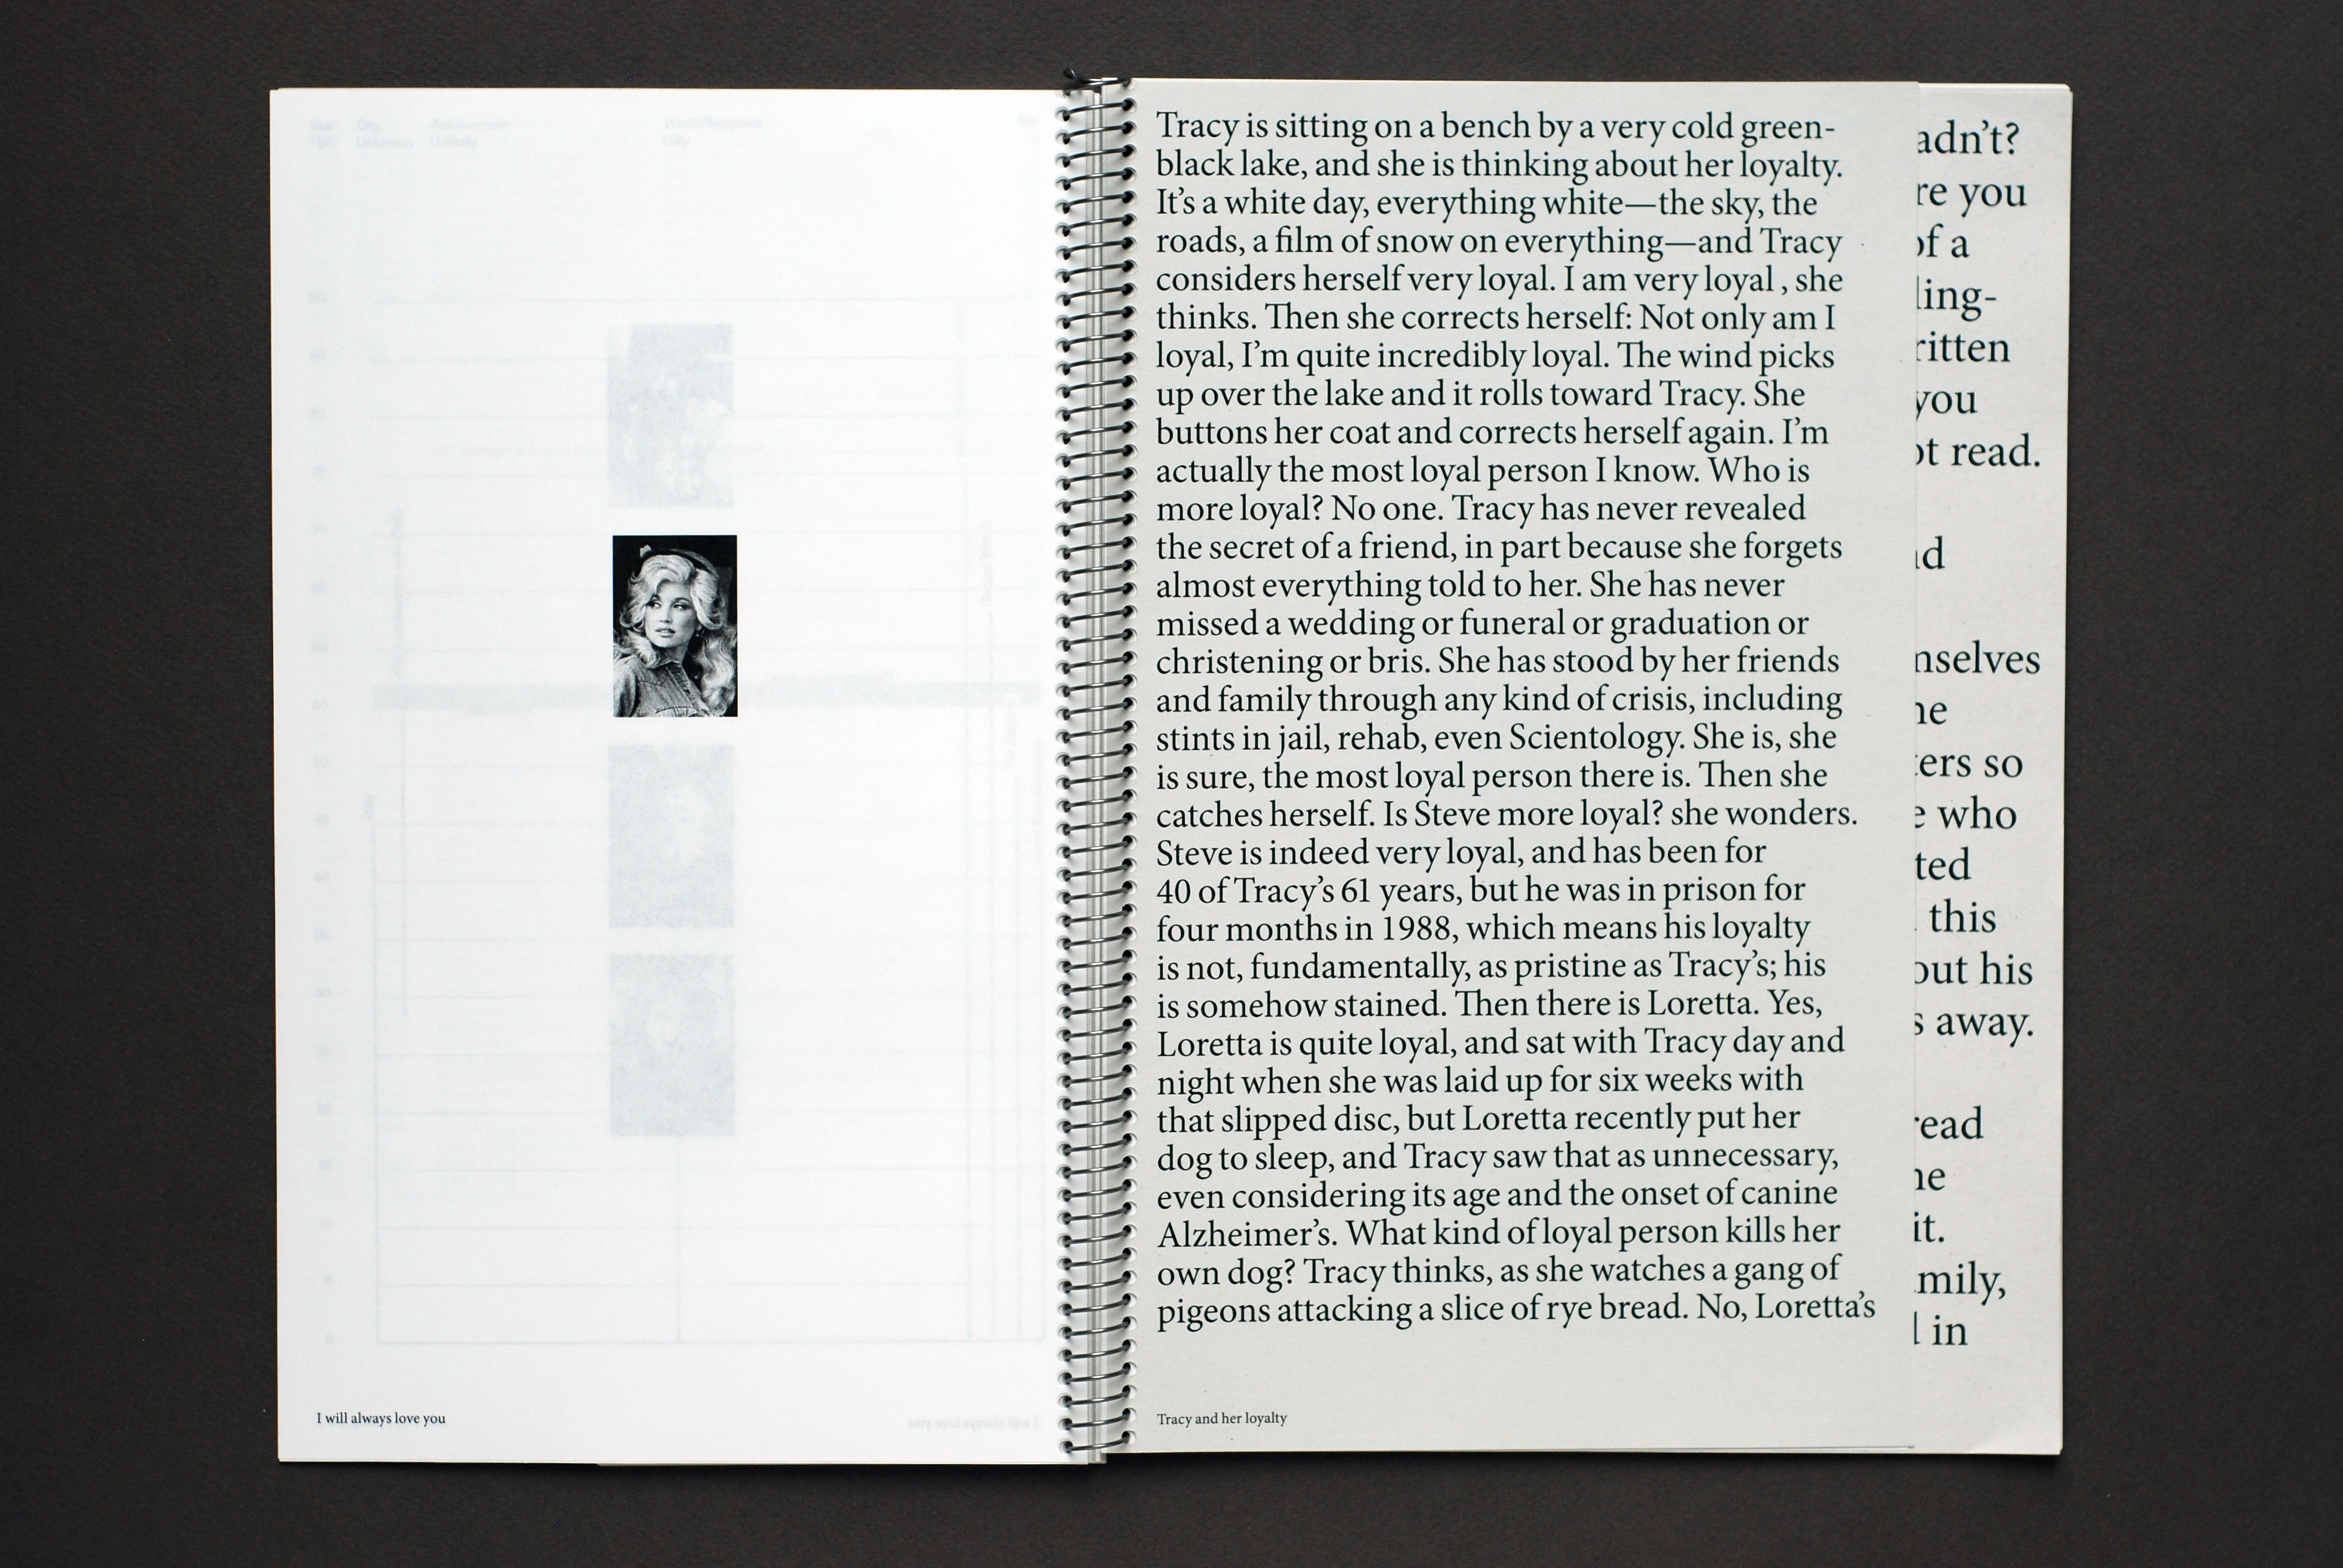 I will always love you
Tracy is sitting on a bench by a very cold green-
black lake, and she is thinking about her loyalty.
It’s a white day, everything white—the sky, the
roads, a film of snow on everything—and Tracy
considers herself very loyal. I am very loyal , she
thinks. Then she corrects herself: Not only am I
loyal, I’m quite incredibly loyal. The wind picks
up over the lake and it rolls toward Tracy. She
buttons her coat and corrects herself again. I’m
actually the most loyal person I know. Who is
more loyal? No one. Tracy has never revealed
the secret of a friend, in part because she forgets
almost everything told to her. She has never
missed a wedding or funeral or graduation or
christening or bris. She has stood by her friends
and family through any kind of crisis, including
stints in jail, rehab, even Scientology. She is, she
is sure, the most loyal person there is. Then she
catches herself. Is Steve more loyal? she wonders.
Steve is indeed very loyal, and has been for
40 of Tracy’s 61 years, but he was in prison for
four months in 1988, which means his loyalty
is not, fundamentally, as pristine as Tracy’s; his
is somehow stained. Then there is Loretta. Yes,
Loretta is quite loyal, and sat with Tracy day and
night when she was laid up for six weeks with
that slipped disc, but Loretta recently put her
dog to sleep, and Tracy saw that as unnecessary,
even considering its age and the onset of canine
Alzheimer’s. What kind of loyal person kills her
own dog? Tracy thinks, as she watches a gang of
pigeons attacking a slice of rye bread. No, Loretta’s
Tracy and her loyalty
adn’t?
re you
of a
ling-
ritten
you
ot read.
nselves
ers so
who
ted
this
out his
s away.
read
it.
mily,
in